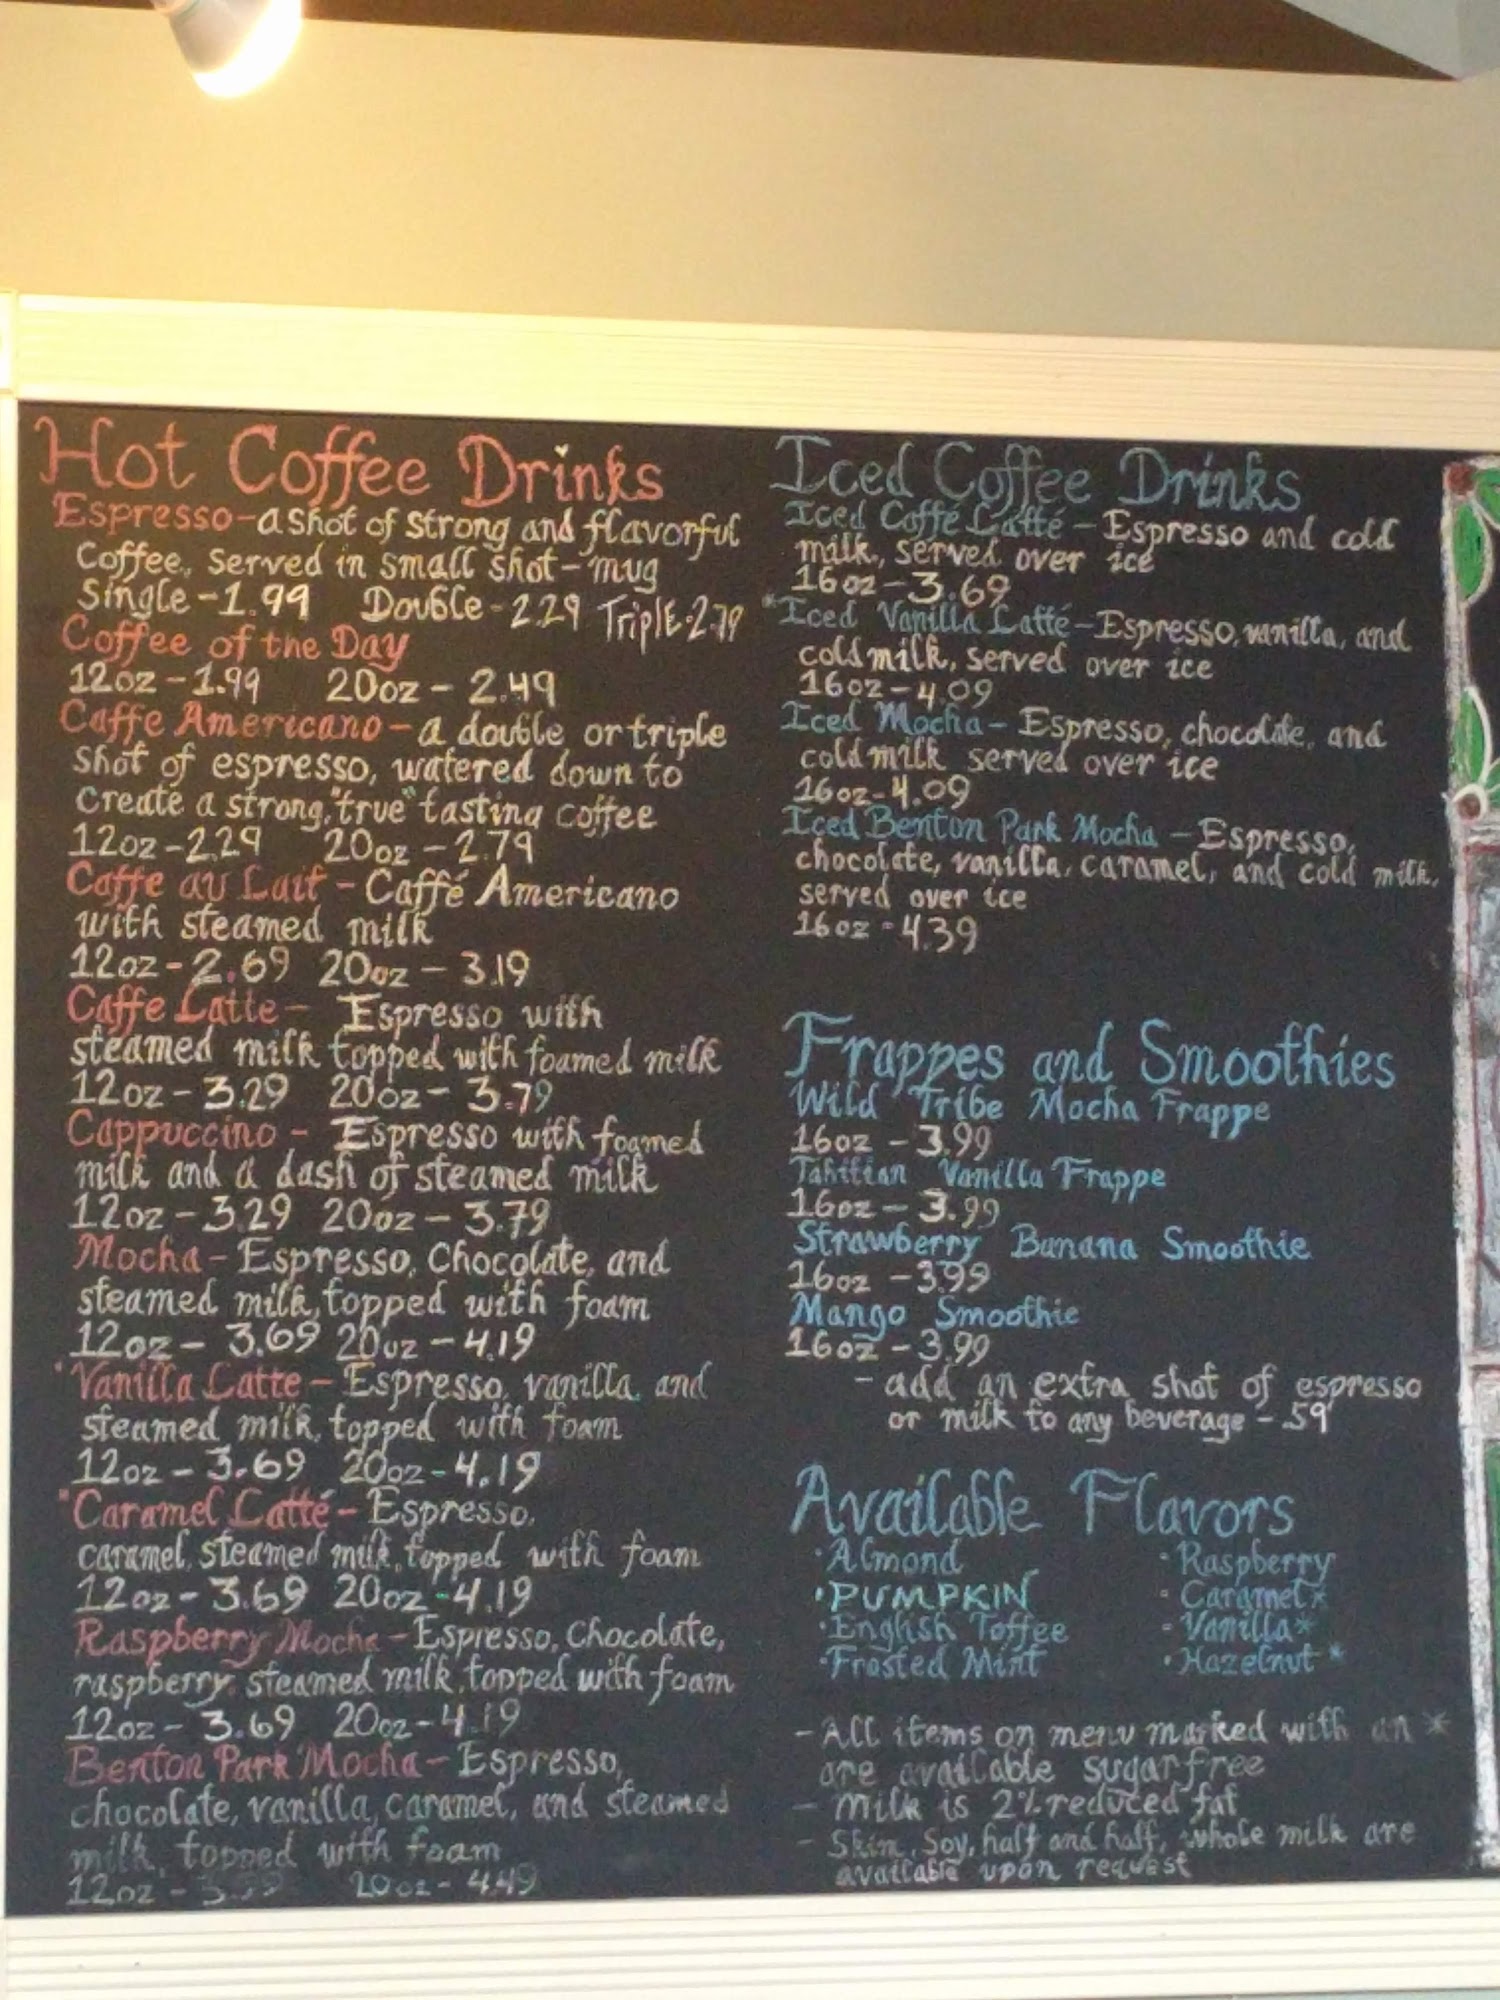 Hot Coffee Drinks
Espresso - a shot of strong and flavorful
Coffee, served in small shot-mug
Single - 1.99 Double - 2.29 Triple - 2.79
Coffee of the Day
12oz - 1.99 20oz - 2.49
Caffe Americano - a double or triple
shot of espresso, watered down to
create a strong, "true" tasting coffee
12oz - 2.29 20oz - 2.79
Caffe au Lait - Caffé Americano
with steamed milk
12oz - 2.69 20oz - 3.19
Caffe Latte - Espresso with
steamed milk topped with foamed milk
12oz - 3.29 20oz - 3.79
Cappuccino - Espresso with foamed
milk and a dash of steamed milk
12oz - 3.29 20oz - 3.79
Mocha - Espresso, Chocolate, and
steamed milk, topped with foam
12oz - 3.69 20oz - 4.19
*Vanilla Latte - Espresso, vanilla, and
steamed milk, topped with foam
12oz - 3.69 20oz - 4.19
*Caramel Latté - Espresso,
caramel, steamed milk, topped with foam
12oz - 3.69 20oz - 4.19
Raspberry Mocha - Espresso, Chocolate,
raspberry, steamed milk, topped with foam
12oz - 3.69 20oz - 4.19
Benton Park Mocha - Espresso,
chocolate, vanilla, caramel, and steamed
milk, topped with foam
12oz - 20oz - 4.49
Iced Coffee Drinks
Iced Caffé Latté - Espresso and cold
milk, served over ice
16oz - 3.69
*Iced Vanilla Latté - Espresso, vanilla, and
cold milk, served over ice
16oz - 4.09
Iced Mocha - Espresso, chocolate, and
cold milk served over ice
16oz - 4.09
Iced Benton Park Mocha - Espresso,
chocolate, vanilla, caramel, and cold milk,
served over ice
16oz - 4.39
Frappes and Smoothies
Wild Tribe Mocha Frappe
16oz - 3.99
Tahitian Vanilla Frappe
16oz - 3.99
Strawberry Banana Smoothie
16oz - 3.99
Mango Smoothie
16oz - 3.99
- add an extra shot of espresso
or milk to any beverage - .59
Available Flavors
• Almond
• PUMPKIN
• English Toffee
• Frosted Mint
• Raspberry
• Caramel*
• Vanilla*
• Hazelnut*
- All items on menu marked with an *
are available sugar free
- Milk is 2% reduced fat
- Skim, Soy, half and half, whole milk are
available upon request